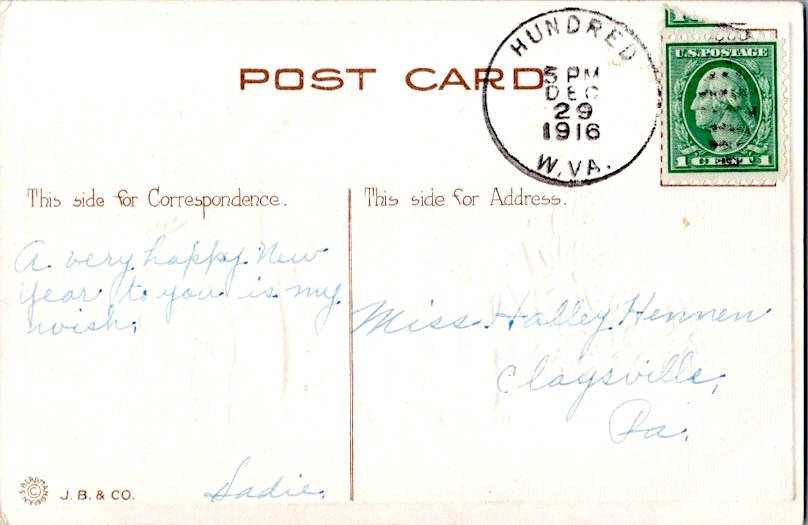 HUNDRED
5 PM
DEC
29
1916
W. VA.
U.S. POSTAGE
1 CENT 1
POST CARD
This side for Correspondence.
This side for Address.
A very happy New
Year to you is my
wish.
Sadie.
Miss Halley Hennen
Claysville,
Pa.
J. B. & CO.